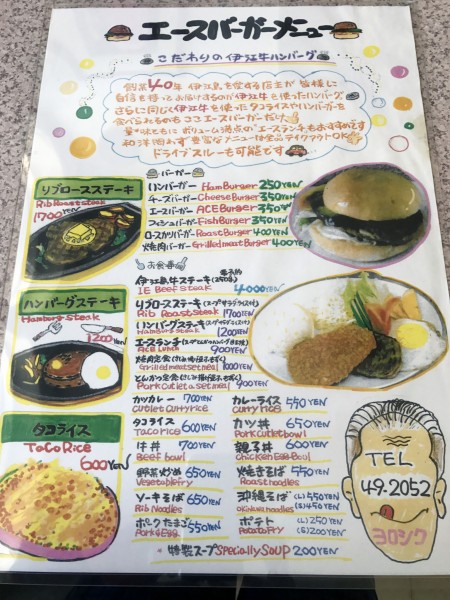 エースバーガーメニュー
こだわりの伊江牛ハンバーグ
創業40年 伊江島を愛する店主が 皆様に
自信を持ってお届けするのが伊江牛を使ったハンバーグ
さらに同じく伊江牛を使ったタコライスやハンバーガーを
食べられるのも ここエースバーガーだけ
量・味ともに ボリューム満点の"エースランチ"もおすすめです
和洋問わず 豊富なメニューは全品テイクアウトOK
ドライブスルーも可能です
バーガー
ハンバーガー HamBurger 250YEN
チーズバーガー CheeseBurger 350YEN
エースバーガー ACE Burger 350YEN
フィシュバーガー FishBurger 350YEN
ロースカツバーガー RoastBurger 400YEN
焼肉バーガー Grilled meat Burger 400YEN
リブロースステーキ
Rib Roast steak
1700YEN
お食事
伊江島牛ステーキ(250g)
IE Beef steak 4000YEN
リブロースステーキ
Rib Roast steak 1700YEN
ハンバーグステーキ
Hamburg steak 1200YEN
エースランチ
ACE Lunch 900YEN
焼肉定食
Grilled meat set meal 1000YEN
とんかつ定食
Pork Cutlet a set meal 900YEN
ハンバーグステーキ
Hamburg Steak
1200YEN
カツカレー 700YEN
Cutlet Curry rice
タコライス 600YEN
Taco rice
牛丼 700YEN
Beef bowl
野菜炒め 650YEN
Vegetable Fry
ソーキそば 650YEN
Rib Noodles
ポークたまご 550YEN
Pork & EGG
カレーライス 550YEN
Curry rice
カツ丼 650YEN
Pork Cutlet bowl
親子丼 600YEN
Chicken EGG Bowl
焼きそば 550YEN
Roast noodles
沖縄そば (L) 550YEN
Okinawa noodles (S) 450YEN
ポテト (L) 250YEN
Potato Fry (S) 200YEN
特製スープ Specially SOUP 200YEN
タコライス
TaCo Rice
600YEN
TEL
49-2052
ヨロシク